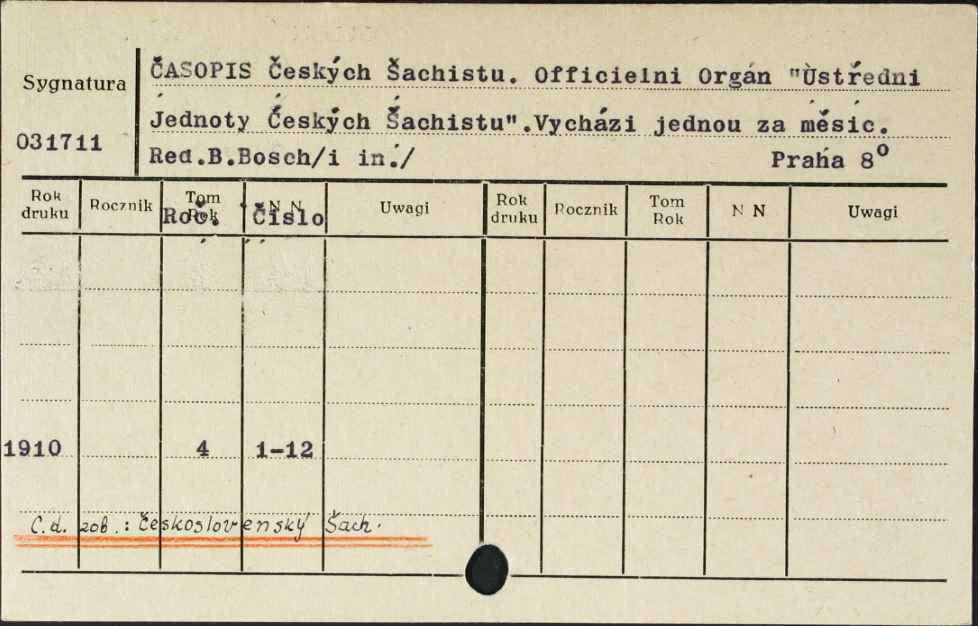 Sygnatura
031711
ČASOPIS Českých Šachistu. Officielni Orgán "Ùstředni
Jednoty Českých Šachistu".Vycházi jednou za měsic.
Red.B.Bosch/i in./ Praha 8º
Rok druku Rocznik Tom Rok N N Uwagi Rok druku Rocznik Tom Rok N N Uwagi
Roč. Čislo
1910 4 1-12
C.d. zob.: Československý Šach.